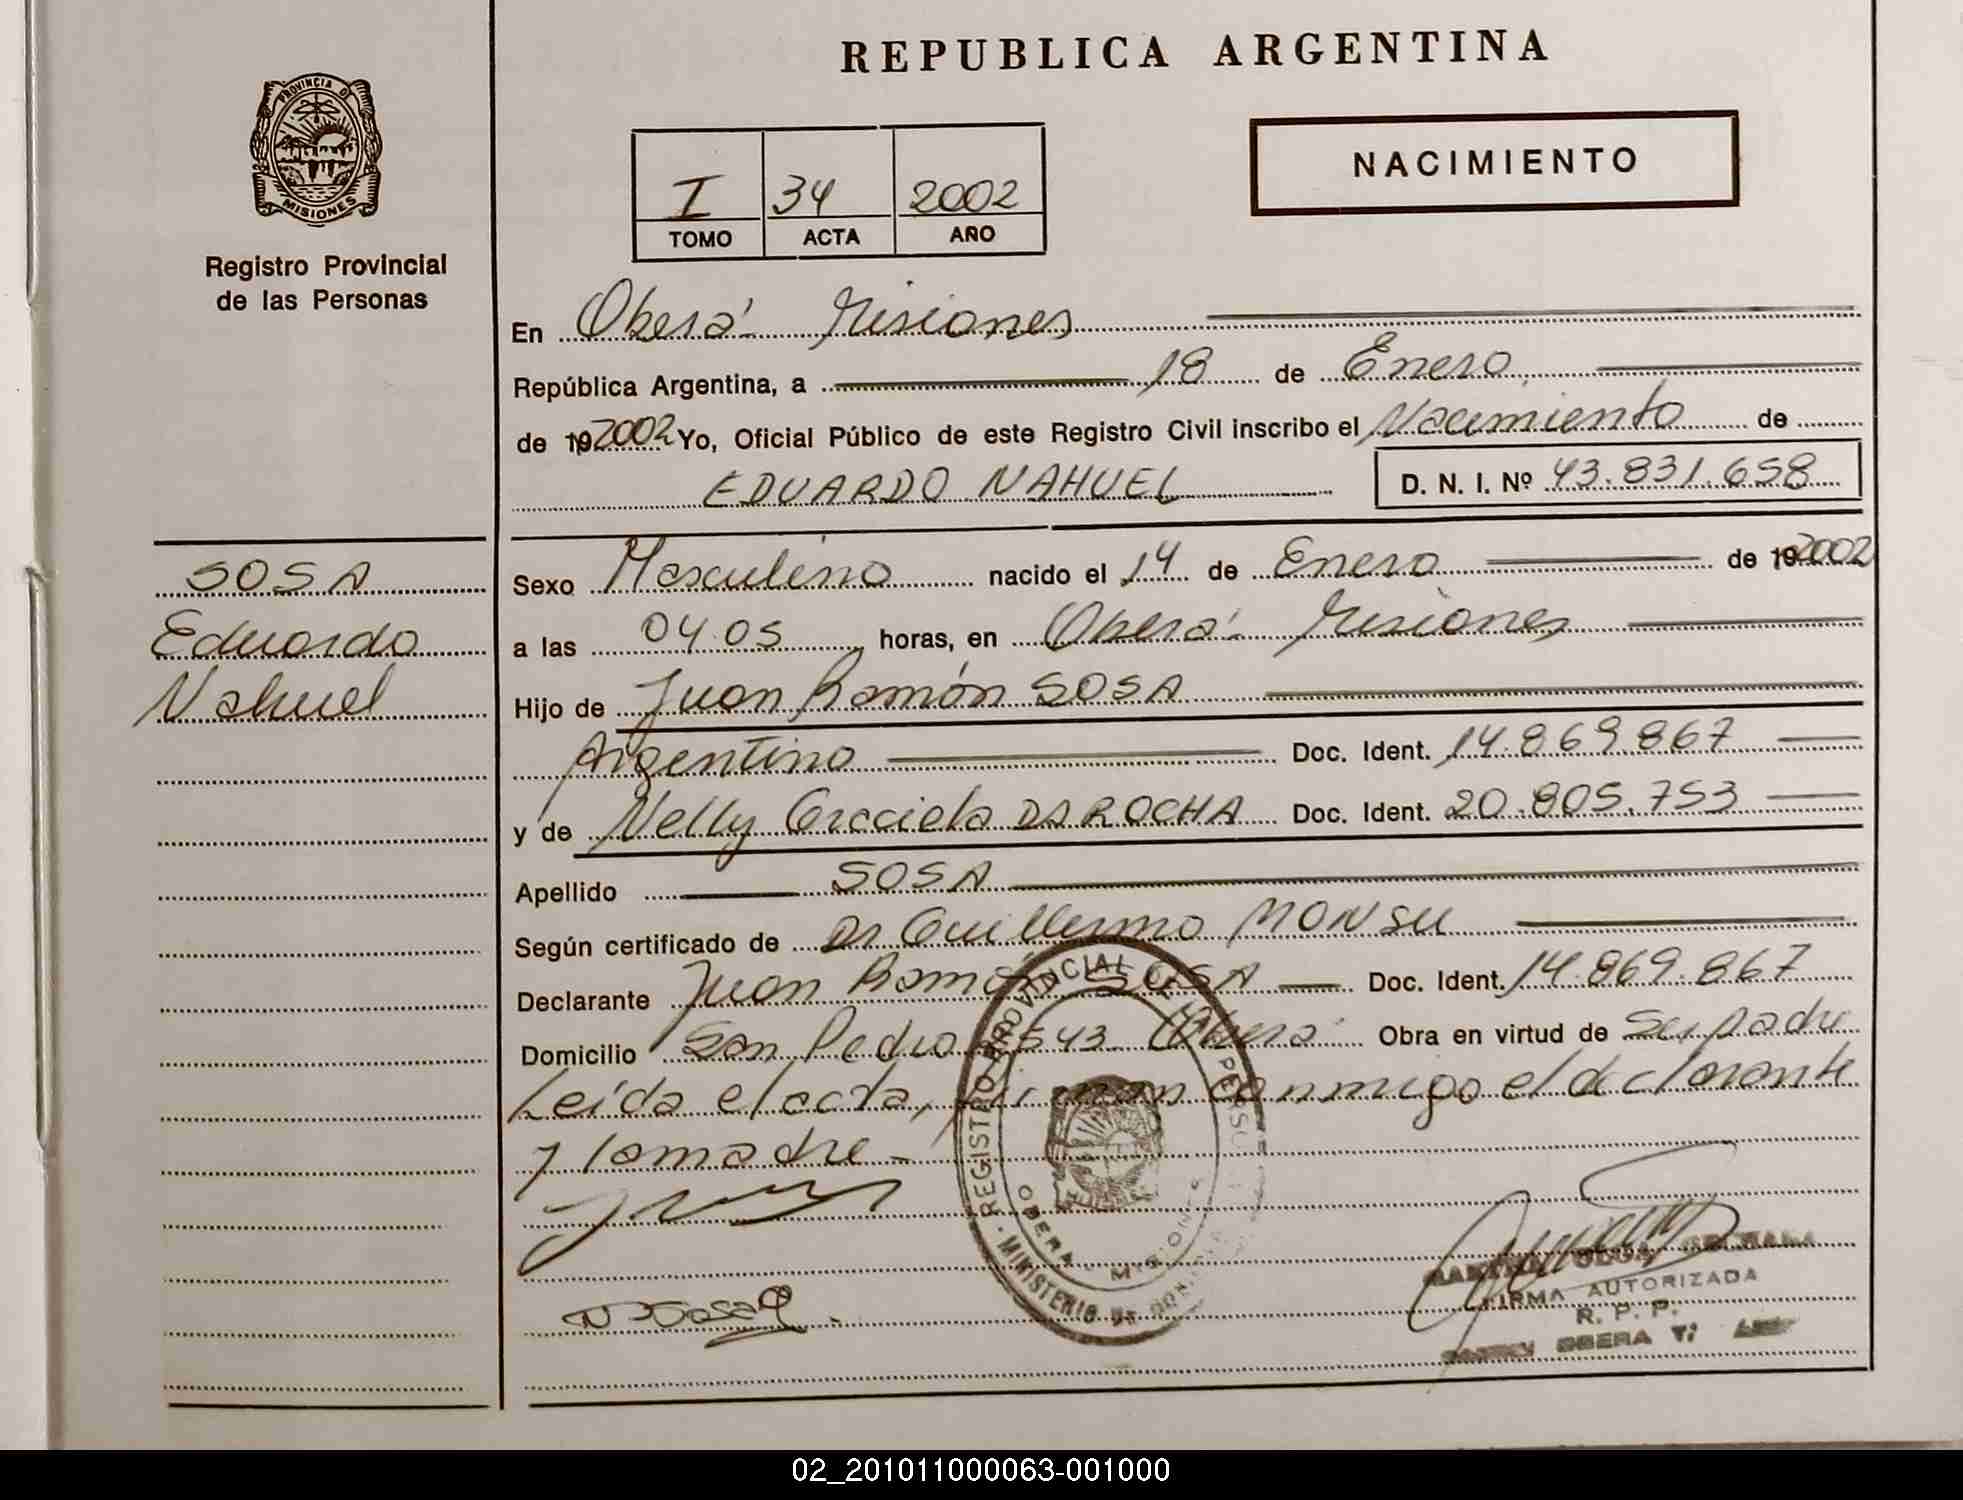 REPUBLICA ARGENTINA
PROVINCIA D
MISIONES
Registro Provincial
de las Personas
I 34 2002
TOMO ACTA AÑO
NACIMIENTO
En Oberá Misiones
República Argentina, a 18 de Enero
de 19 2002 Yo, Oficial Público de este Registro Civil inscribo el Nacimiento de
EDUARDO NAHUEL D. N. I. Nº 43.831.658
SOSA
Eduardo
Nahuel
Sexo Masculino nacido el 14 de Enero de 19 2002
a las 04.05 horas, en Oberá Misiones
Hijo de Juan Ramón SOSA
Argentino Doc. Ident. 14.869.867
y de Nelly Graciela DA ROCHA Doc. Ident. 20.805.753
Apellido SOSA
Según certificado de Dr Guillermo MONSU
Declarante Juan Ramón SOSA Doc. Ident. 14.869.867
Domicilio San Pedro 543 Oberá Obra en virtud de Ser padre
Leída el acta, firman conmigo el declarante
y la madre -
REGISTRO PROVINCIAL
MINISTERIO DE
OBERA - MISIONES
FIRMA AUTORIZADA
R. P. P.
OBERA
02_201011000063-001000